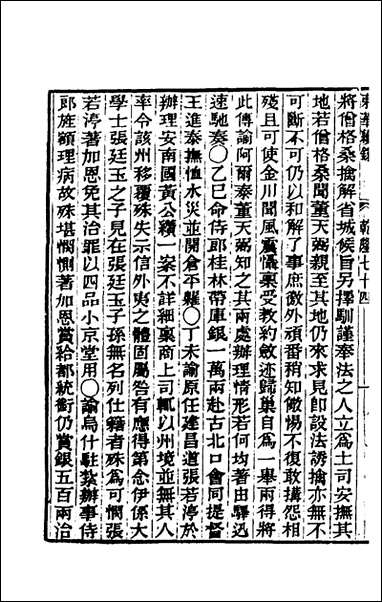 將僧格桑擒解省城候旨另擇馴謹奉法之人立爲土司安撫其
地若僧格桑聞董天弼親至其地仍來求見卽設法誘擒亦無不
可斷不可仍以和解了事庶徼外頑番稍知儆惕不復敢搆怨相
殘且可使金川聞風震懾稟受敎約斂迹歸巢自爲一舉兩得將
此傳諭阿爾泰董天弼知之其兩處辦理情形若何均著由驛迅
速馳奏〇乙巳命侍郎桂林帶庫銀一萬兩赴古北口會同提督
王進泰撫恤水災並開倉平糶〇丁未諭原任建昌道張若渟於
辦理安南國黃公纘一案不詳細稟商上司輒以州境並無其人
率令該州移覆殊失示信外夷之體固屬咎有應得第念伊係大
學士張廷玉之子見在張廷玉子孫無名列仕籍者殊爲可憫張
若渟著加恩免其治罪以四品小京堂用〇諭烏什駐紮辦事侍
郎旌額理病故殊堪憫惻著加恩賞給都統銜仍賞銀五百兩治
乾隆七十四